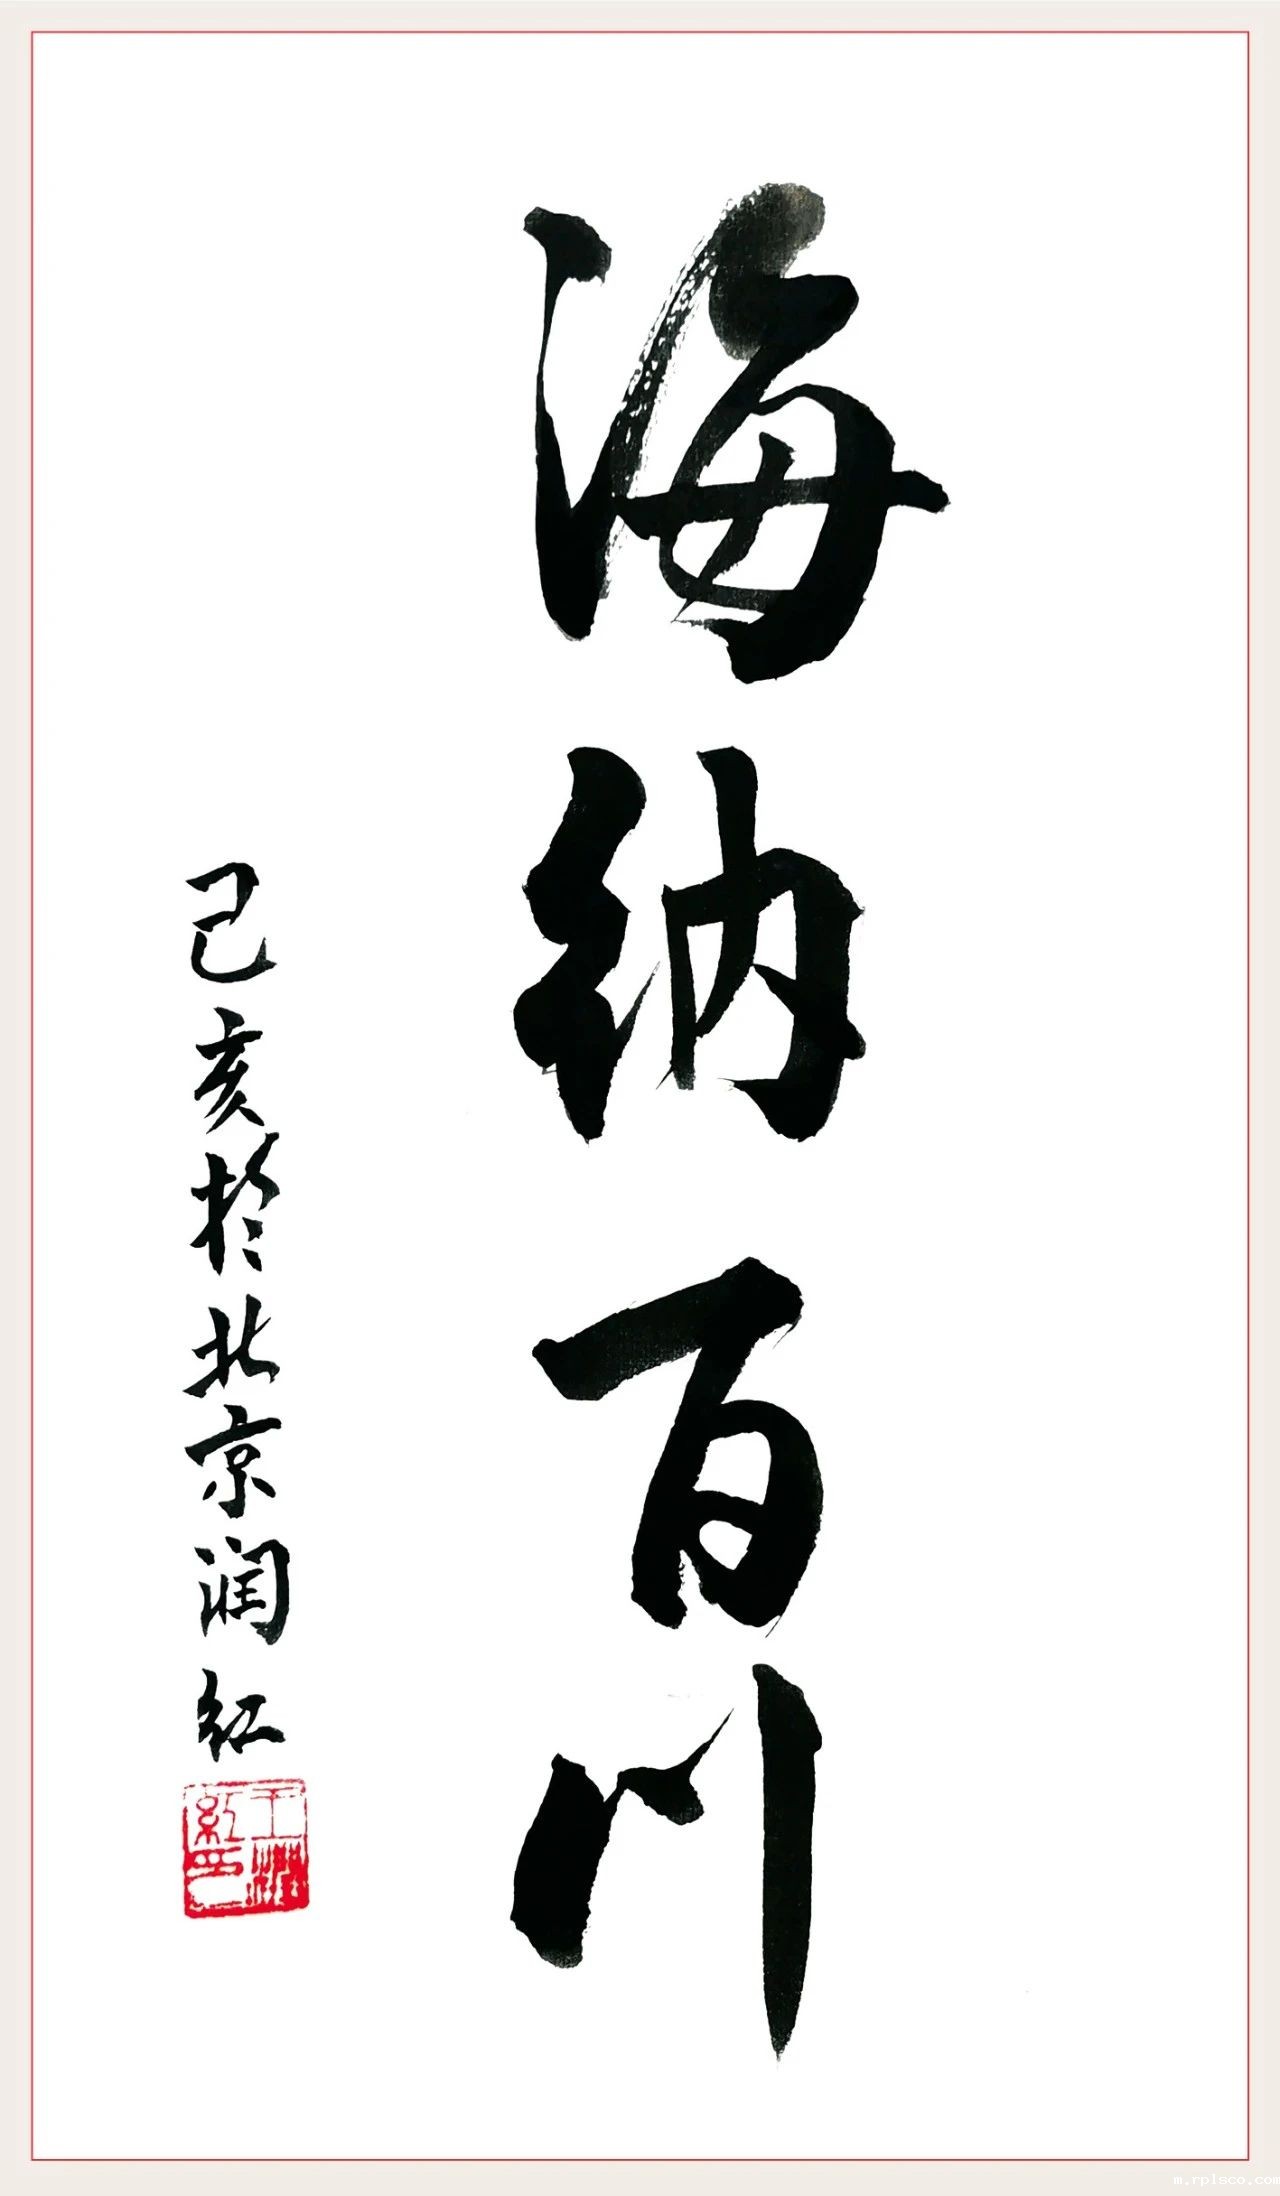 海纳百川
己亥於北京润红
王润红印
m.rplsco.com